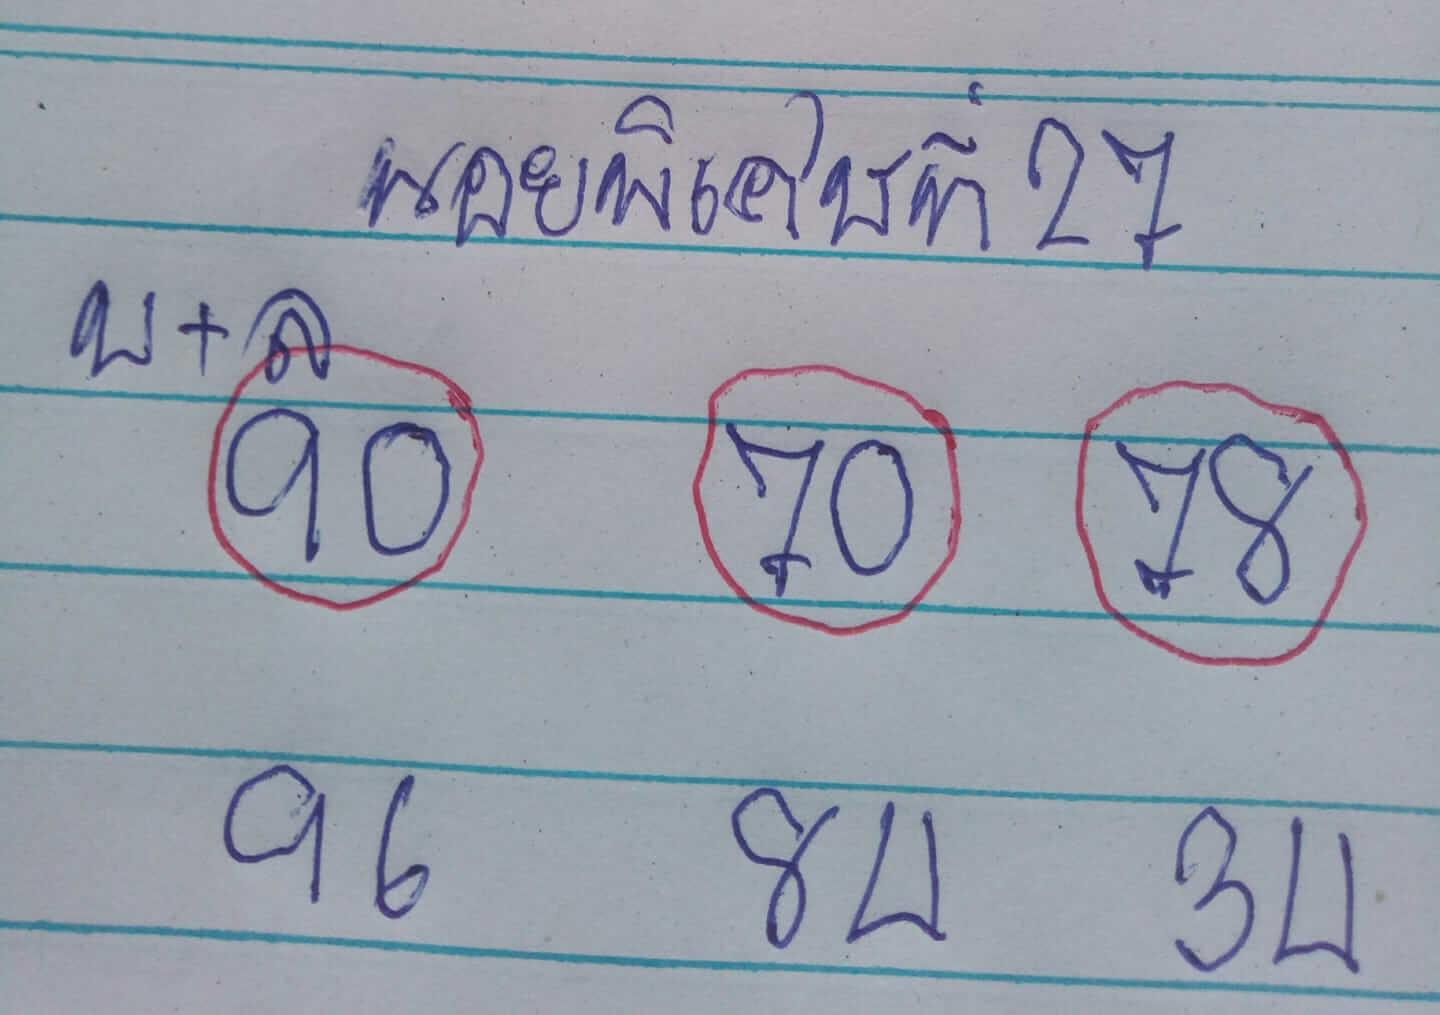 หอยพิเศษที่ 27
บ+ล
90 70 78
96 84 34